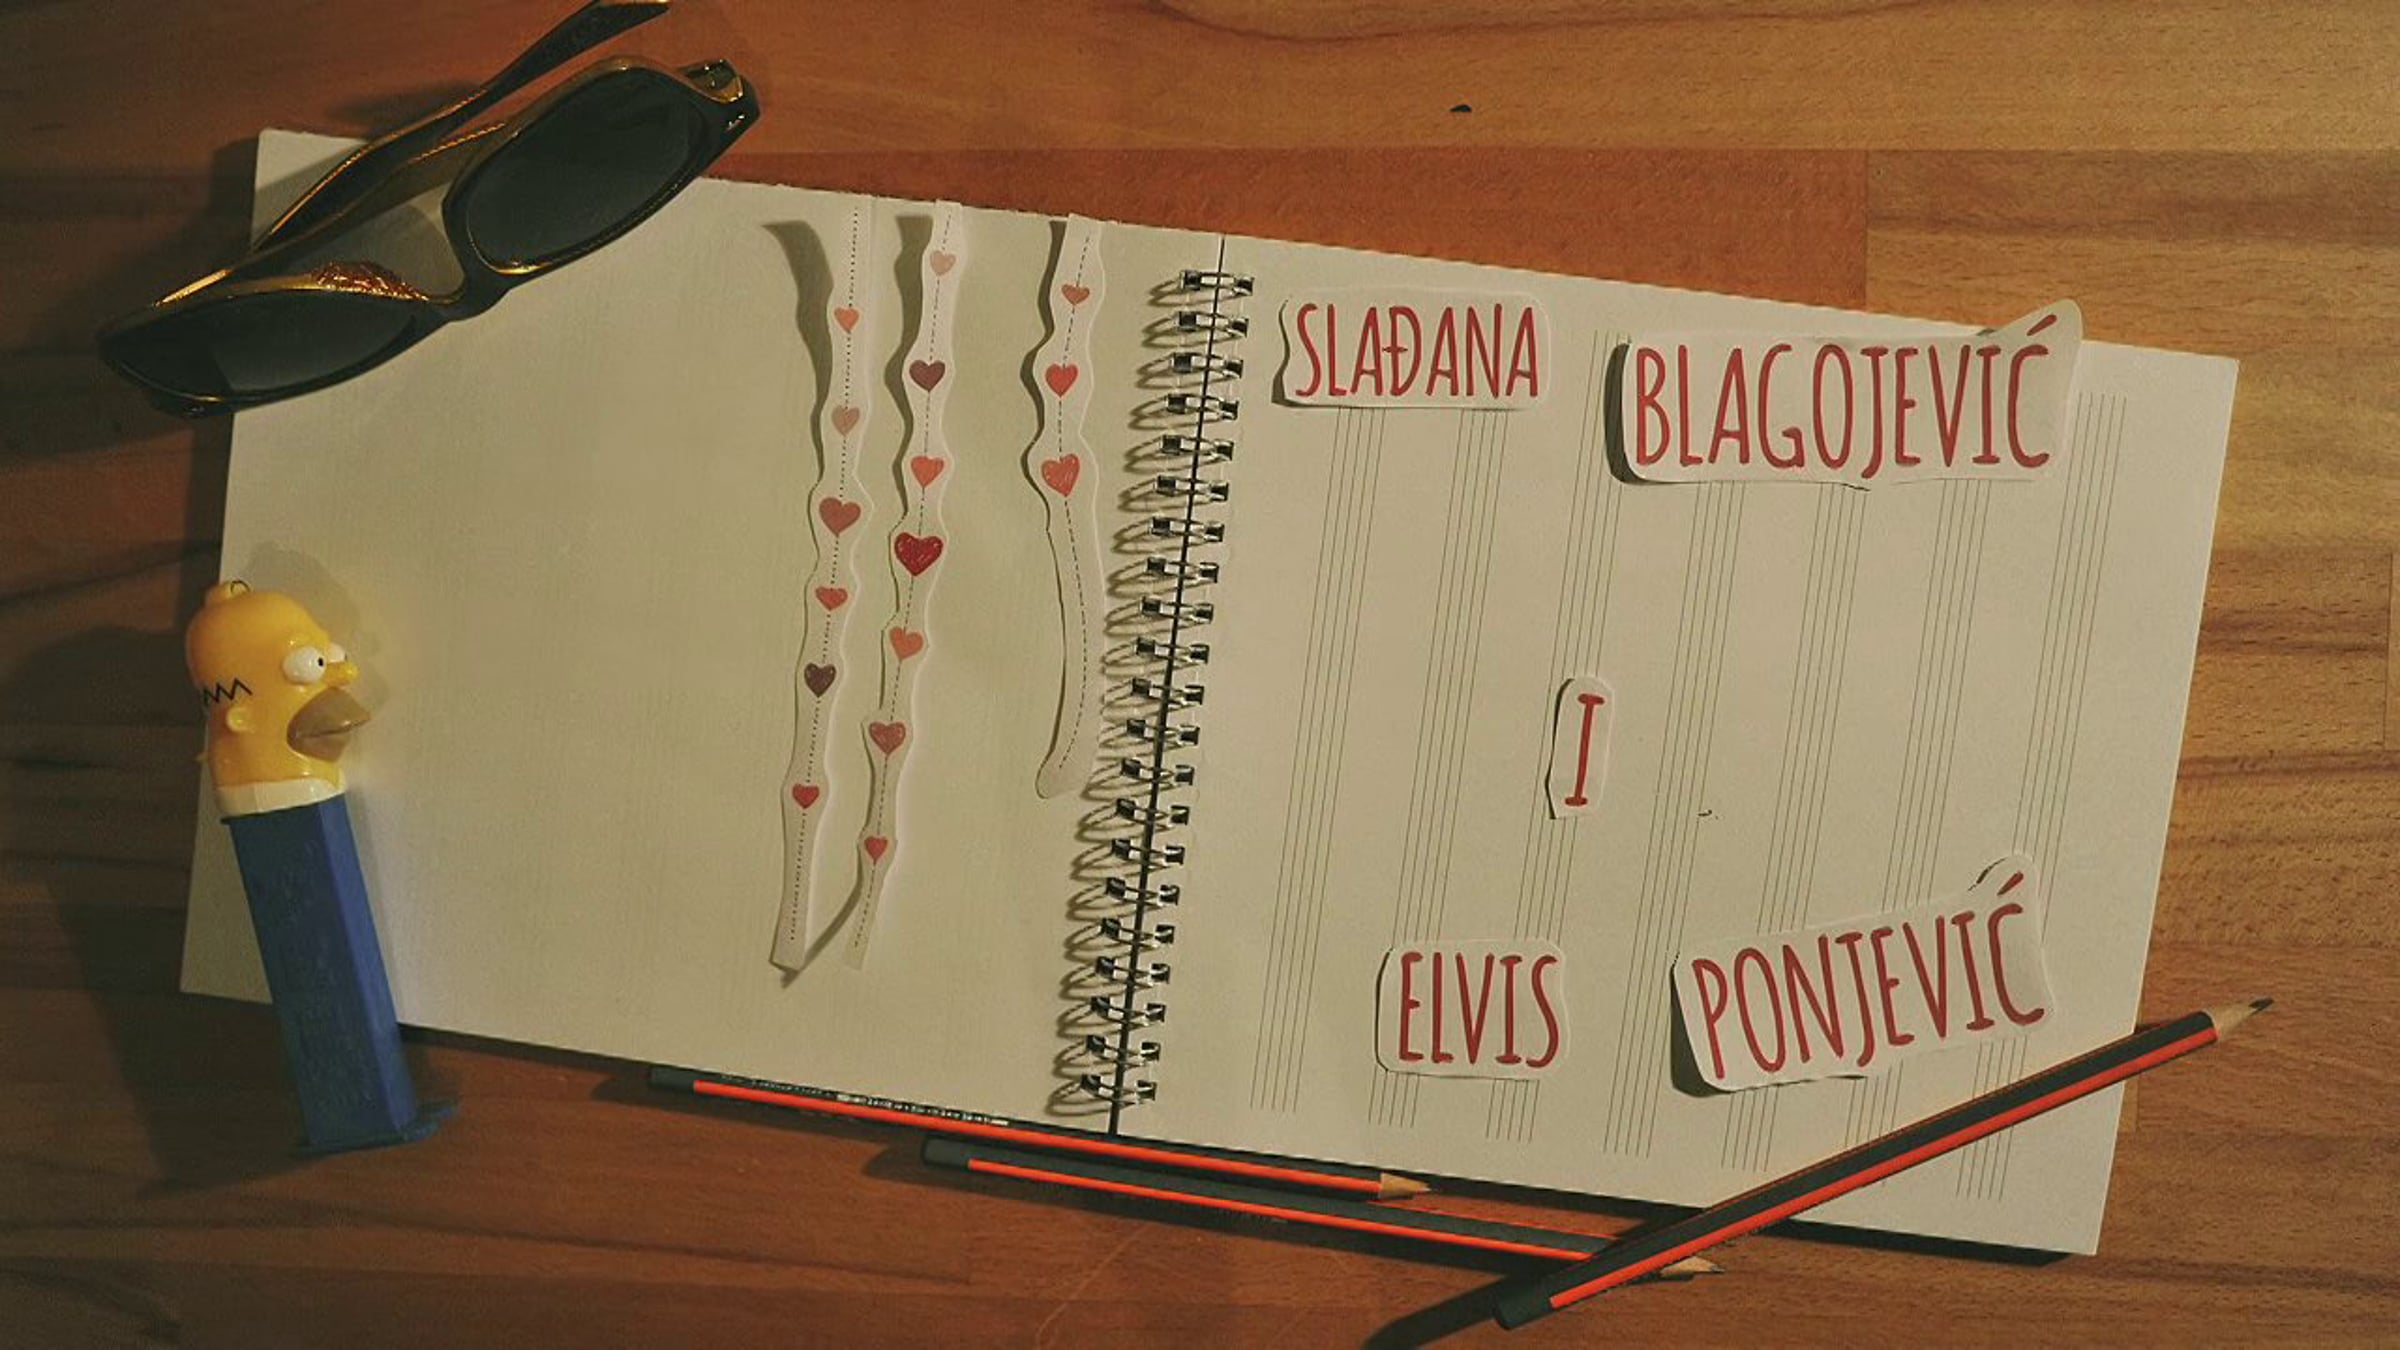 SLAĐANA BLAGOJEVIĆ
I
ELVIS PONJEVIĆ